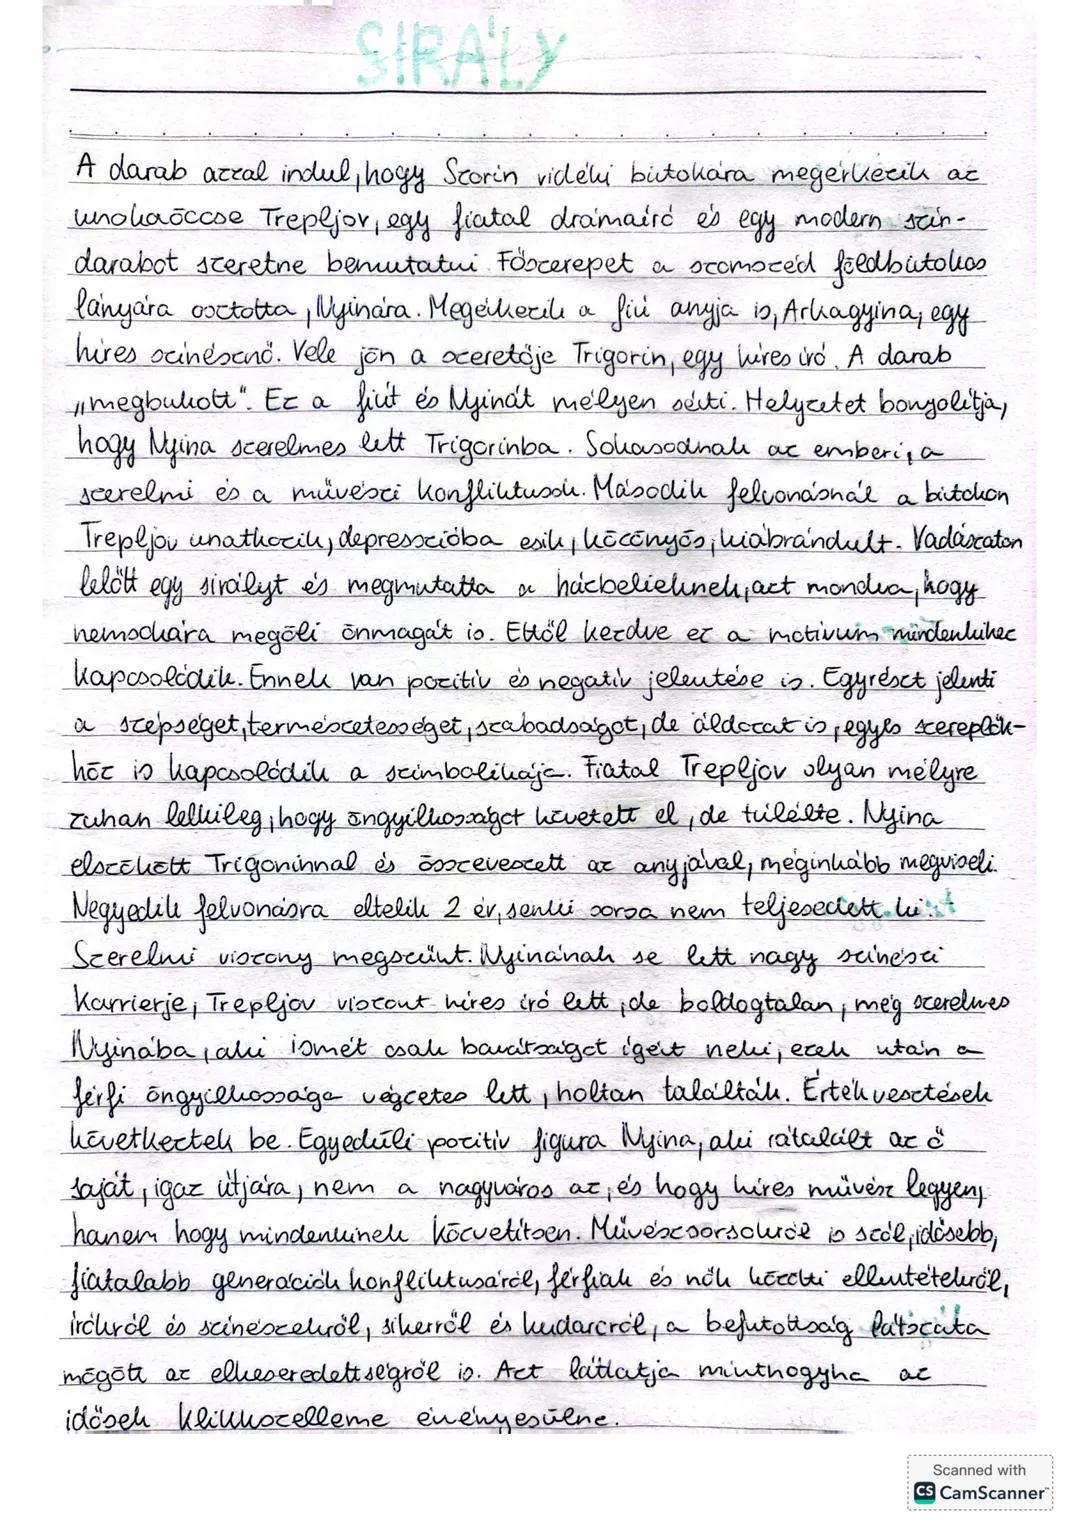 SIRÁLY
A darab azzal indul, hogy Szorin vidéki birtokára megérkezik az
unokaöccse Trepljov, egy fiatal drámaíró és egy modern szín-
darabot szeretne bemutatni. Főszerepet a szomszéd földbirtokos
lányára osztotta, Nyinára. Megérkezik a fiú anyja is, Arkagyina, egy
híres színésznő. Vele jön a szeretője Trigorin, egy híres író. A darab
„megbukott". Ez a fiút és Nyinát mélyen sérti. Helyzetet bonyolítja,
hogy Nyina szerelmes lett Trigorinba. Sokasodnak az emberi, a
szerelmi és a művészi konfliktusok. Második felvonásnál a birtokon
Trepljov unatkozik, depresszióba esik, közönyös, kiábrándult. Vadászaton
lelőtt egy sirályt és megmutatta a házbelieknek, azt mondva, hogy
nemsokára megöli önmagát is. Ettől kezdve ez a motívum mindenkihez
kapcsolódik. Ennek van pozitív és negatív jelentése is. Egyrészt jelenti
a szépséget, természetességet, szabadságot, de áldozat is, egyes szereplők-
höz is kapcsolódik a szimbolikája. Fiatal Trepljov olyan mélyre
zuhan lelkileg, hogy öngyilkosságot követett el, de túlélte. Nyina
elszökött Trigorinnal és összeveszett az anyjával, méginkább megviseli.
Negyedik felvonásra eltelik 2 év, senki sorsa nem teljesedett ki.
Szerelmi viszony megszűnt. Nyinának se lett nagy színészi
karrierje, Trepljov viszont híres író lett, de boldogtalan, még szerelmes
Nyinába, aki ismét csak barátságot ígért neki, ezek után a
férfi öngyilkossága végzetes lett, holtan találták. Értékvesztések
következtek be. Egyedüli pozitív figura Nyina, aki rátalált az ő
saját, igaz útjára, nem a nagyváros az, és hogy híres művész legyen,
hanem hogy mindenkinek közvetítsen. Művészsorsokról is szól, idősebb,
fiatalabb generációk konfliktusáról, férfiak és nők közötti ellentétekről,
írókról és színészekről, sikerről és kudarcról, a befutottság látszata
mögött az elkeseredettségről is. Azt láttatja minthogyha az
idősek klikkszelleme érvényesülne.
Scanned with
CS CamScanner